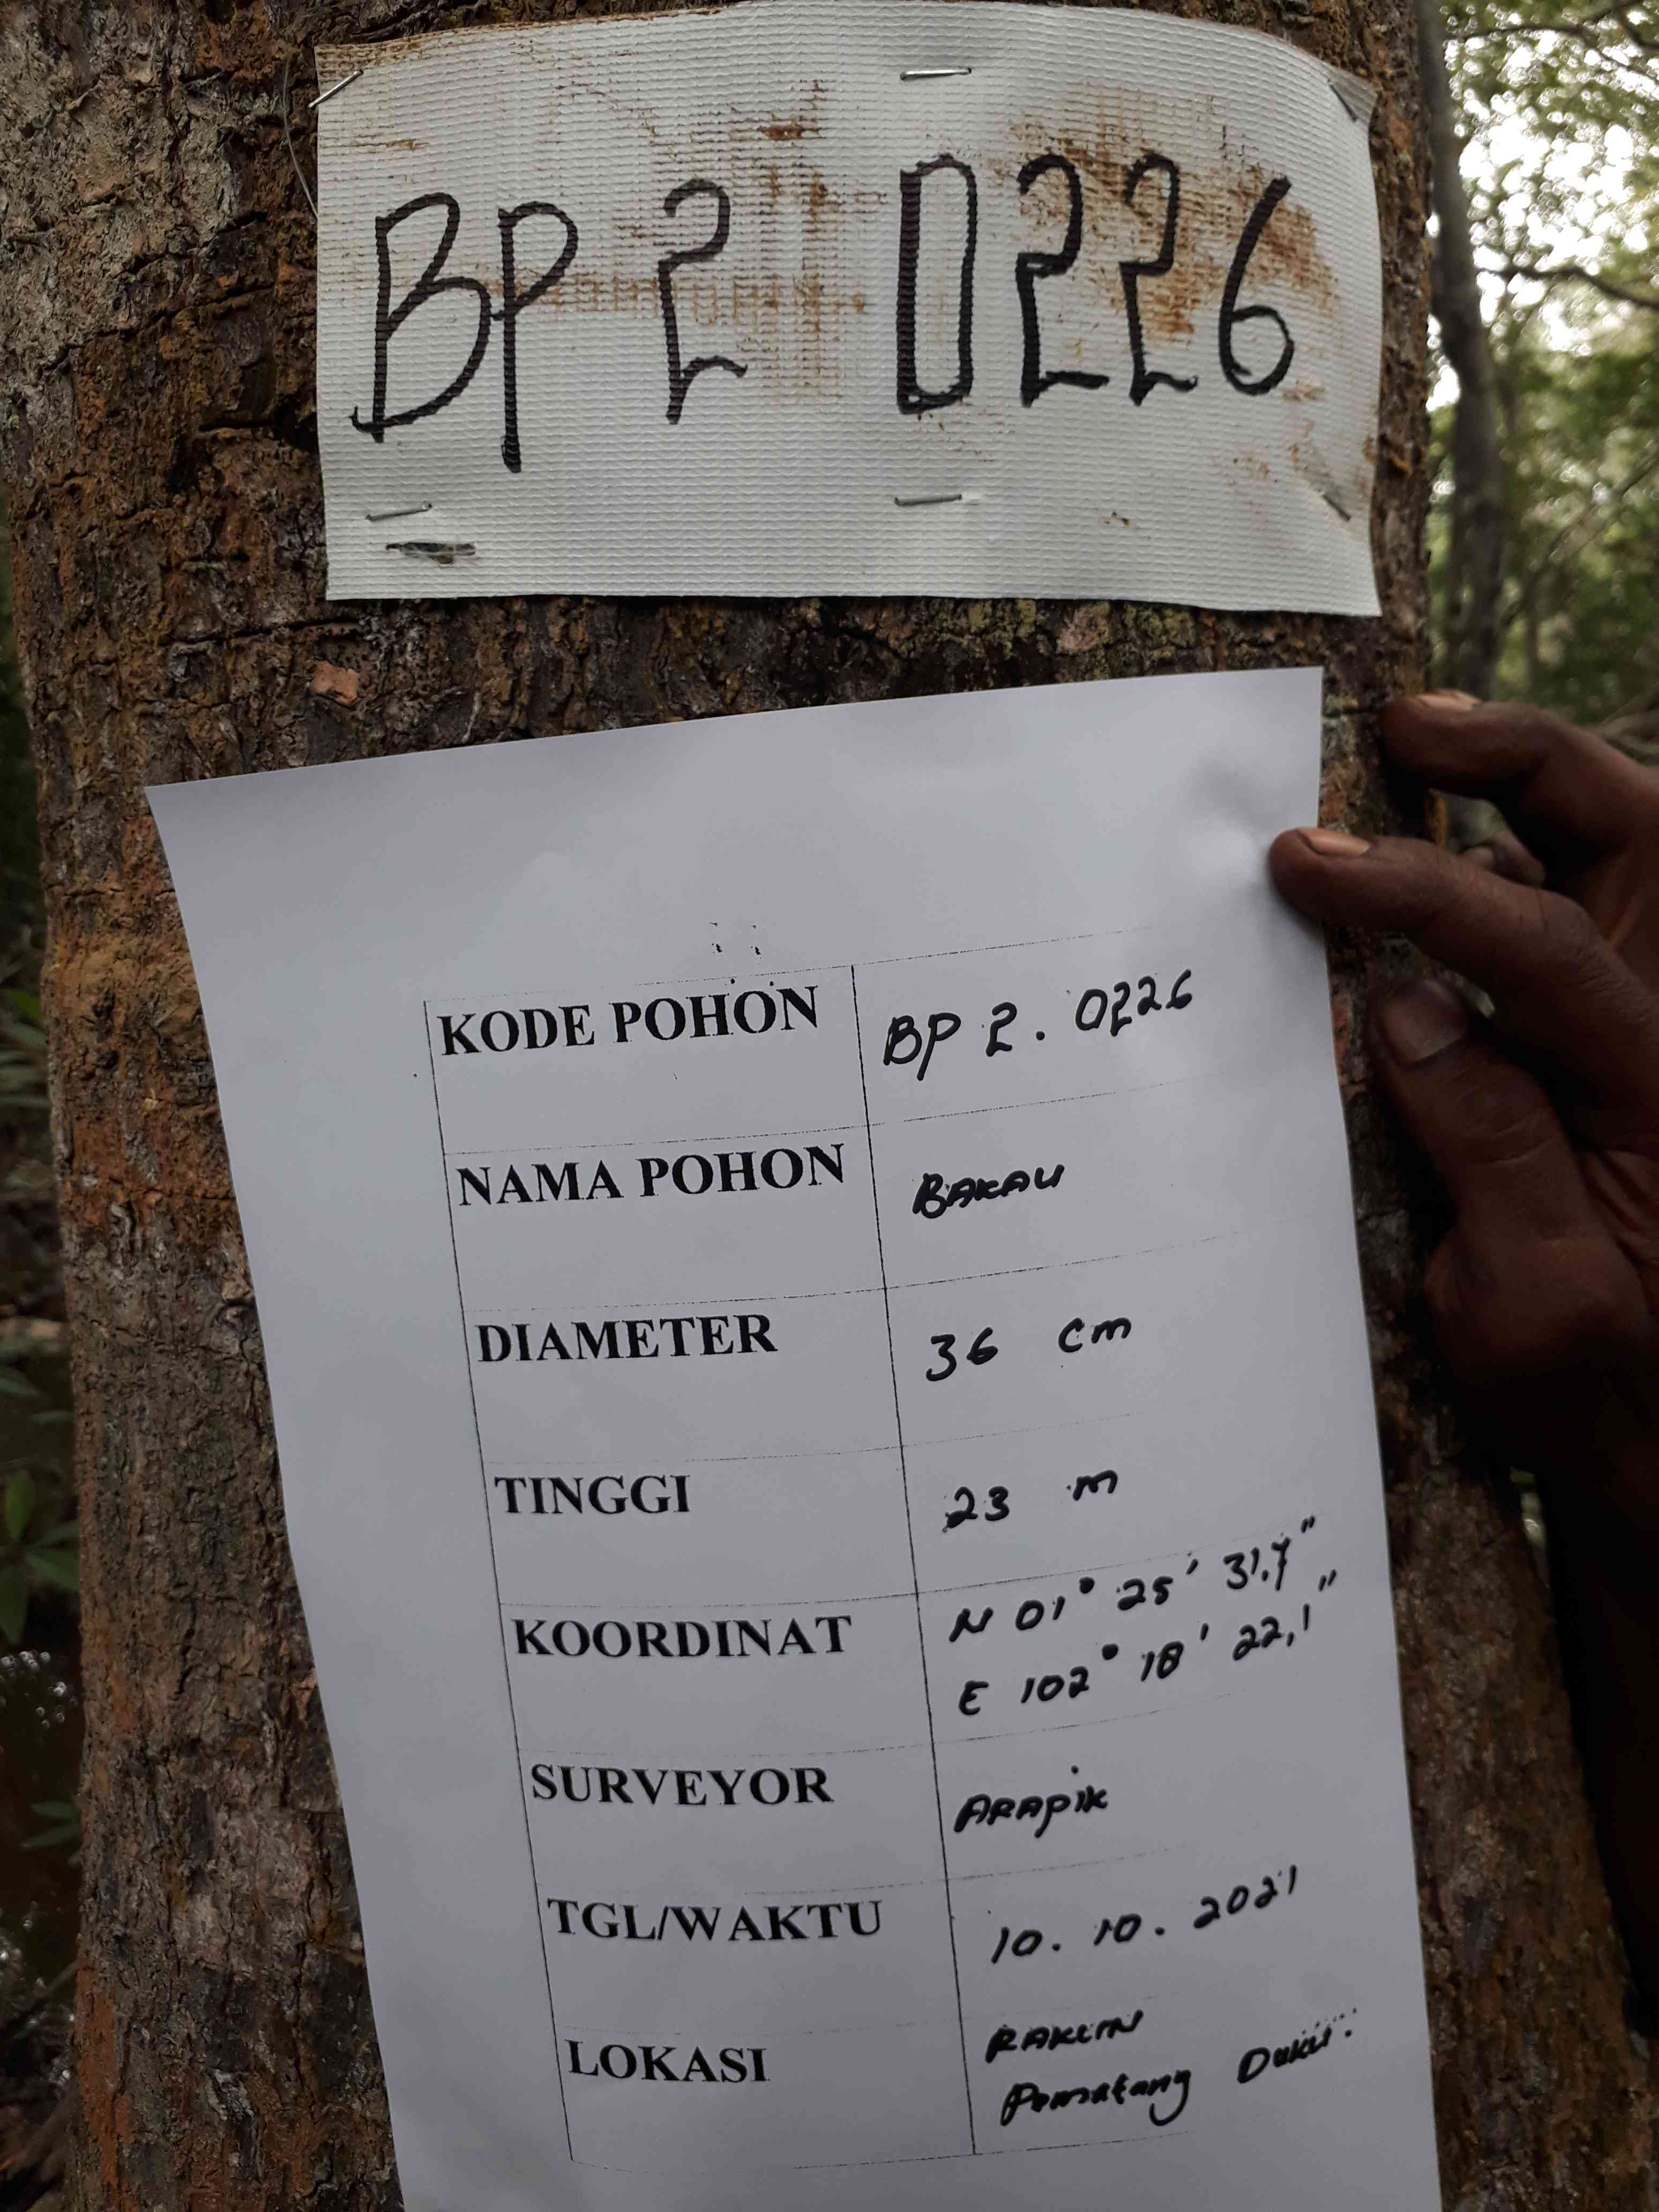 BP 2 0226
KODE POHON BP 2. 0226
NAMA POHON BAKAU
DIAMETER 36 cm
TINGGI 23 m
KOORDINAT N 01° 25' 31.7"
E 102° 18' 22,1"
SURVEYOR ARAPIK
TGL/WAKTU 10. 10. 2021
LOKASI
Pematang Duku.